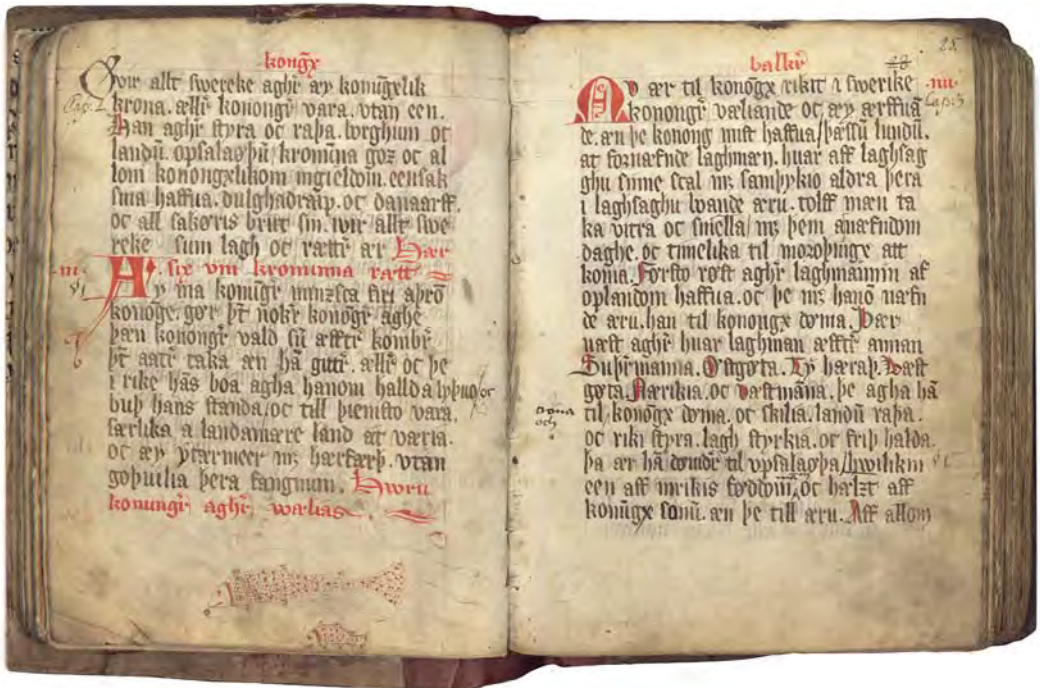 kongx
Ovir allt swereke aghr æy konugxlik
Cap. 2
krona. ællr konongr vara. vtan een.
Han aghr styra oc raþa. borghum oc
landū. opsalaøþū / kronūna goz oc al
lom konongxlikom ingieldom. eensak
sina haffua. dulghadrap. oc danaarff.
oc all sakøris brut sin. iwir allt swe
reke sum lagh oc rættr ær Hær
six vm kronunna rætt
.iii.
Æy ma konūgr minzsca firi aþrō
konōge. gør þt nokr konōgr aghe
þæn konongr vald sū æfftr kombr
þt aatr taka æn hā gittr. ællr oc þe
i rike hās boa agha hanom hallda lyþno / oc
buþ hans standa / oc till þiensto vara.
særlika a landamære land at væria.
oc æy ytærmeer mz hærfærþ. vtan
goþuilia þera fangnum. Hwru
konungr aghr wælias
balkr
28
25
Nv ær til konōgx rikit i swerike
.iiii.
Cap: 3
konongr væliande oc æy ærffuā
de. æn þe konong mist haffua / þæssū lundū.
at fornæfnde laghmæn. huar aff laghsag
ghu sinne scal mz samþykio aldra þera
i laghsaghu boande æru. tolff mæn ta
ka vitra oc snella / mz þem anæfndom
daghe. oc timelika til moroþinge att
koma. Første røst aghr laghmannin af
oplandom haffua. oc þe mz hanō næfn
de æru. han til konongx døma. Þær
næst aghr huar laghman æfftr annan
Suþrmanna. Østgøta. Ty hæraþ. Væst
gøta. Nærikia. oc væstmāna. þe agha hā
til konōgx døma. oc skilia. landū raþa.
oc riki styra. lagh styrkia. oc friþ halda.
þa ær hā dømdr til vpsalaøþa / hwilikin
een aff inrikis føddom oc hælzt aff
konūgx sonū. æn þe till æru. Aff allom